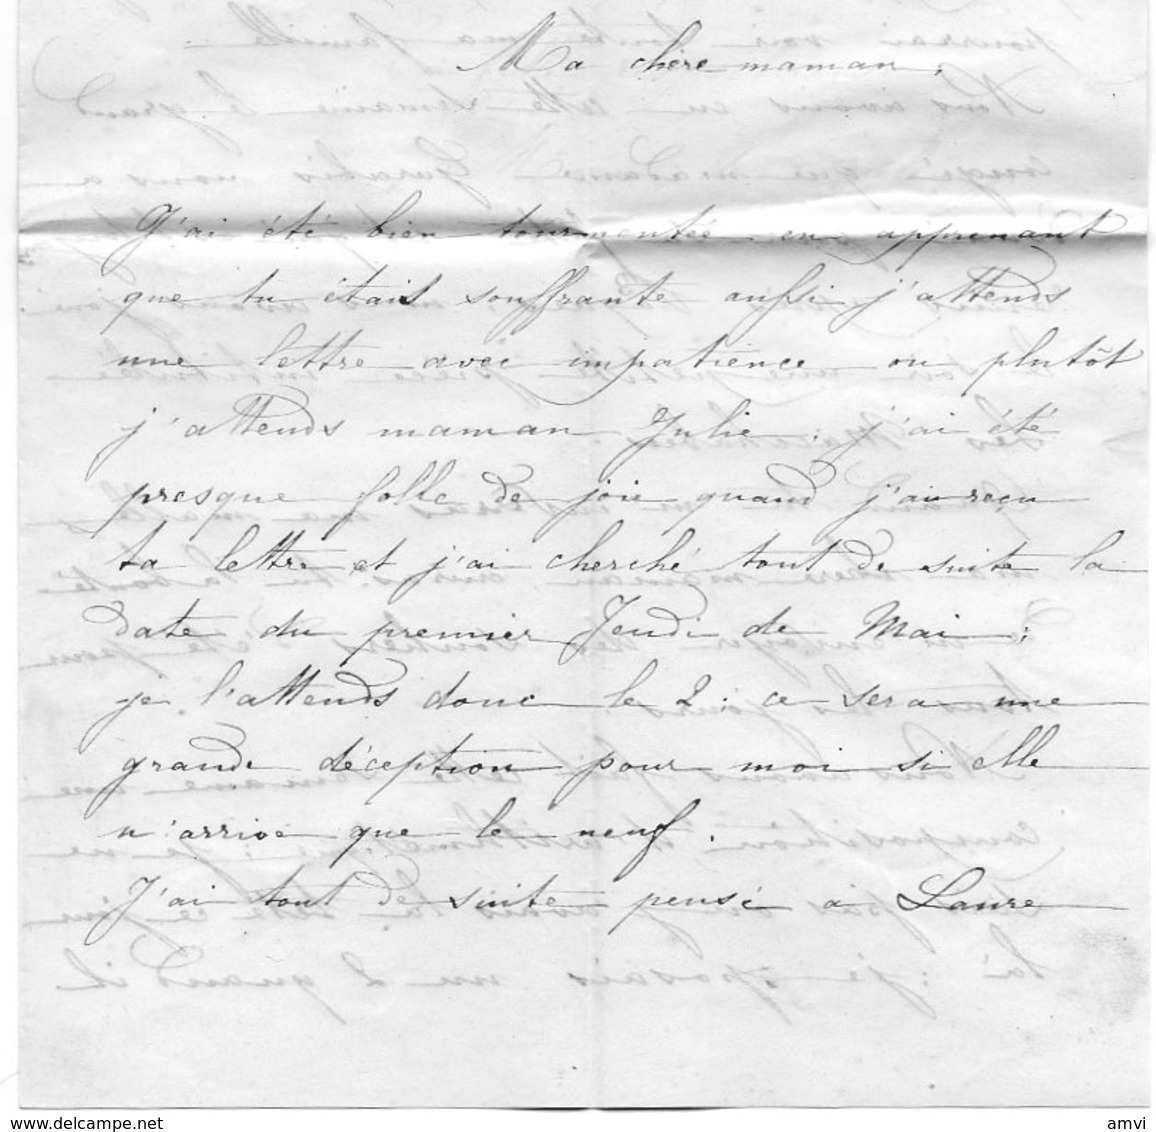 Ma chère maman,
J'ai été bien tourmentée en apprenant
que tu étais souffrante aussi j'attends
une lettre avec impatience ou plutôt
j'attends maman Julie ; j'ai été
presque folle de joie quand j'ai reçu
ta lettre et j'ai cherché tout de suite la
date du premier Jeudi de Mai ;
je l'attends donc le 2 : ce sera une
grande déception pour moi si elle
n'arrive que le neuf.
J'ai tout de suite pensé à Laure
www.delcampe.net
amvi